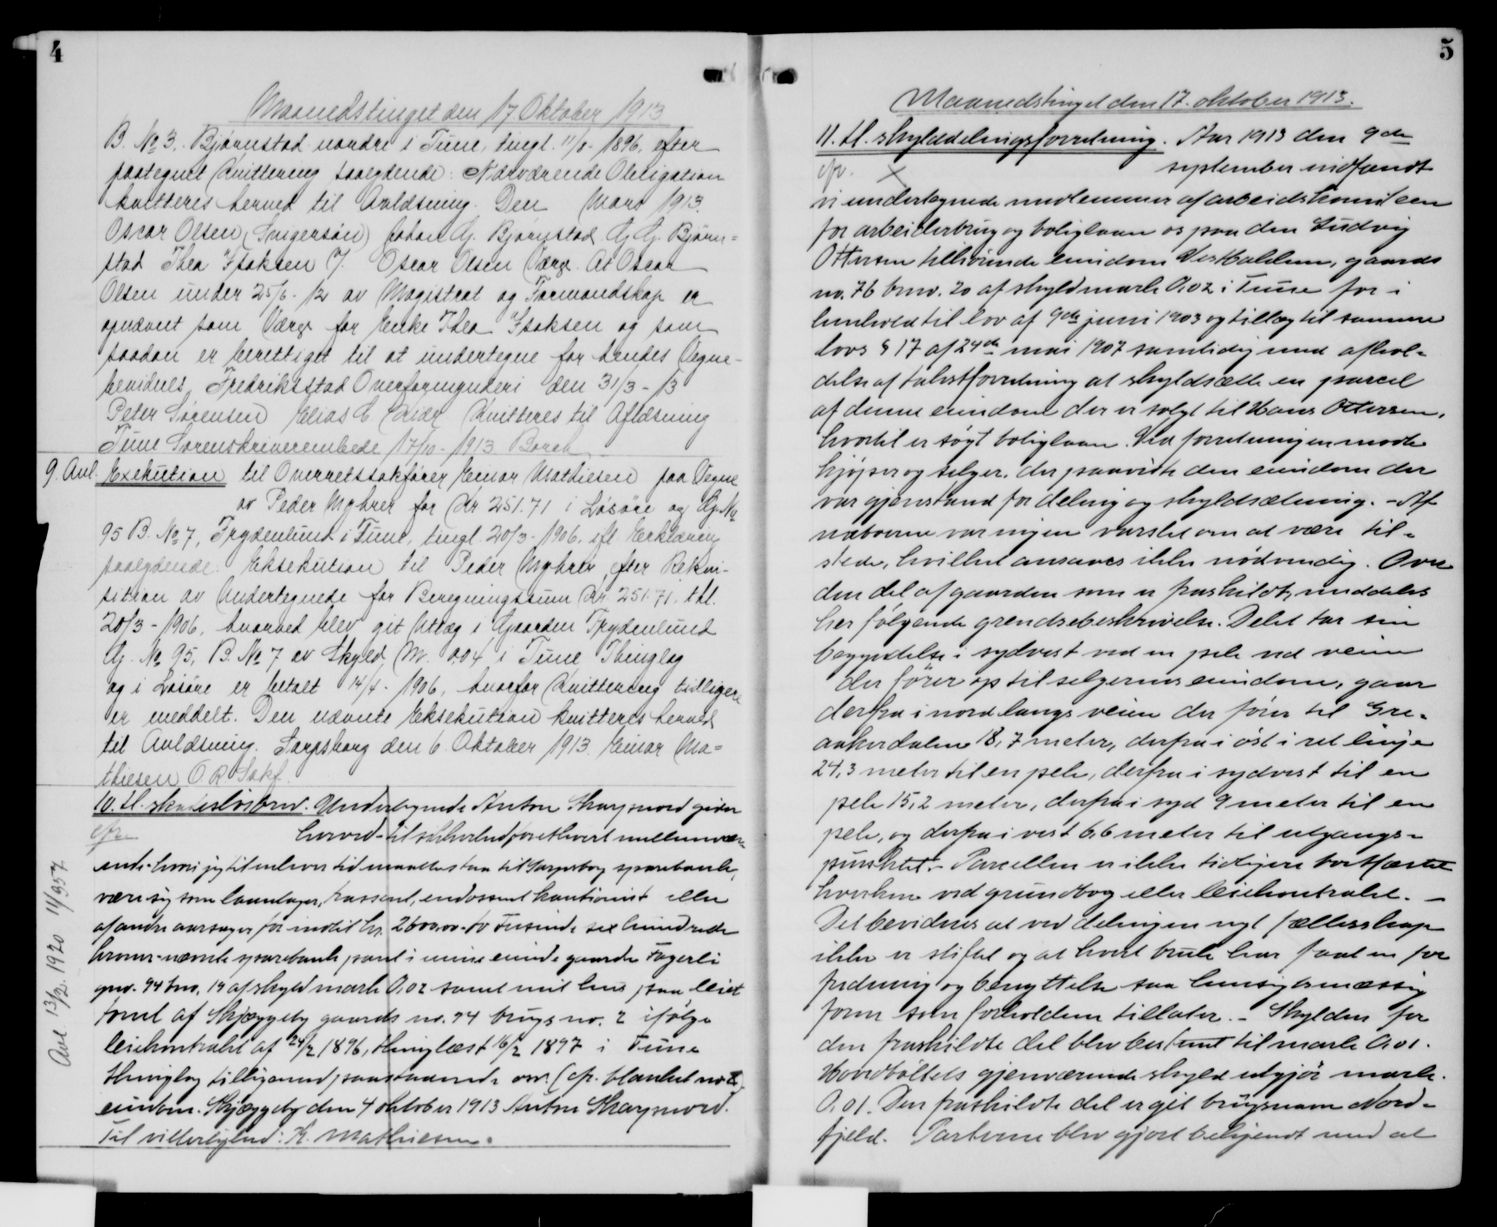 4
Maanedstinget den 17 Oktober 1913
B. No 3. Bjørnstad nordre i Tune, tingl. 11/8 - 1896, efter
paategnet Kvittering saalydende: Nærværende Obligation
kvitteres herved til Avlæsning. Den Mars 1913.
Oscar Olsen Johan G. Bjørnstad G. G. Bjørn-
stad Thea Isaksen Oscar Olsen Værge. At Oscar
Olsen under 25/6 - 12 av Magistrat og Formandskap er
opnævnt som Værge for Enke Thea Isaksen og som
saadan er berettiget til at undertegne for hendes Vegne
bevidnes, Fredriksstad Overformynderi den 31/3 - 13
Peter Sørensen Elias C. Kvitteres til Aflæsning
Tune Sorenskriverembede 17/10 - 1913
9. Avl. Exekution til Overretssakfører Einar Mathiesen paa Vegne
av Peder Myhrer for Kr 251.71 i Løsøre og G. No
95 B. No 7, Frydenlund i Tune, tingl. 20/3 - 1906, ifl. Erklæring
saalydende: Eksekution til Peder Myhrer, efter Rekvi-
sition av Undertegnede for Beregningssum Kr. 251.71, tgl.
20/3 - 1906, hvorved blev git Utlæg i Gaarden Frydenlund
G. No 95, B. No 7 av Skyld M. 0.04 i Tune Thinglag
og i Løsøre er betalt 14/4 - 1906, hvorfor Kvittering tidligere
er meddelt. Den nævnte Eksekution kvitteres herved
til Avlæsning. Sarpsborg den 6 Oktober 1913. Einar Ma-
thiesen O.R. Sakf.
10. tl. skadesløsbrev. Undertegnede Anton Skarpnord giver
cfr. herved til sikkerhed for ethvert mellemvær-
ende hvori jeg til enhver tid maatte staa til Sarpsborg sparebank,
være sig som laantager, trassent, endossent kautionist eller
af andre aarsager for indtil kr. 2600.00 - to Tusinde sex hundrede
kroner nævnte sparebank pant i min eiende gaarde Fagerli
gno. 94 bno. 19 af skyld mark 0,02 samt mit hus paa leiet
tomt af Skjæggeby gaards no. 94 brugs no. 2 ifølge
leiekontrakt af 24/2 1896, thinglæst 16/2 1897 i Tune
thinglag tilligemed paastaaende (cfr. blanket no 2)
eiendom. Skjæggeby den 4 oktober 1913 Anton Skarpnord.
Til vitterlighed: K. Mathiesen.
Avl 13/2. 1920 11/957
5
Maanedstinget den 17. oktober 1913.
11. tl. skylddelingsforretning. Aar 1913 den 9de
cfr. X september indfandt
vi undertegnede medlemmer af arbeidskomiteen
for arbeiderbrug og boliglaan os paa den Ludvig
Ottersen tilhørende eiendom Nordbalten, gaards
no. 76 bno. 20 af skyldmark 0,02 i Tune for i
henhold til lov af 9de juni 1903 og tillæg til samme
lovs § 17 af 24de mai 1907 samtidig med afhol-
delse af takstforretning at skyldsætte en parcel
af denne eiendom der er solgt til Hans Ottersen,
hvortil er søgt boliglaan. Ved forretningen mødte
kjøper og selger, der paaviste den eiendom der
var gjenstand for deling og skyldsætning. - Af
naboerne var ingen varslet om at være til-
stede, hvilket ansaaes ikke nødvendig. Over
den del af gaarden som er fraskildt, meddeles
her følgende grendsebeskrivelse. Delet tar sin
begyndelse i sydvest ved en pele ved veien
der fører op til selgernes eiendom, gaar
derfra i nord langs veien der fører til Gre-
aakerdalen 18,7 meter, derfra i øst i ret linje
24,3 meter til en pele, derfra i sydvest til en
pele 15,2 meter, derfra i syd 9 meter til en
pele, og derfra i vest 6,6 meter til utgangs-
punktet. - Parcellen er ikke tidligere bortfæstet
hverken ved grundbog eller leiekontrakt. -
Det bevidnes at ved delingen nyt fællesskap
ikke er stiftet og at hvert bruk har faat en for
fredning og benyttelse saa hensigtsmæssig
form som forholdene tillater. - Skylden for
den fraskildte del blev bestemt til mark 0,01.
Hovedbøllets gjenværende skyld utgjør mark
0,01. Den fraskildte del er git brugsnavn Nord-
fjeld. Parterne blev gjort bekjendt med at